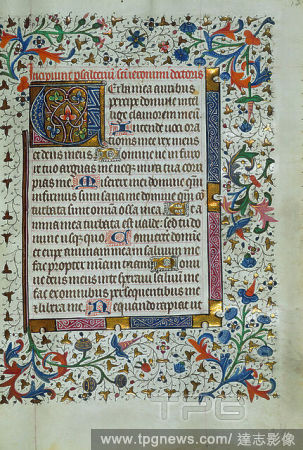 Incipiunt psalteriu sci ieronimi doctoris
Erba mea auribus
percipe domine intel
lige clamorem meu
Intende uoci ora
tionis mee rex meus
et deus meus Domine ne in furo
re tuo arguas me neq in ira tua corri
pias me Miserere mei domine qm
infirmus sum sana me domine qm
turbata sunt omnia ossa mea Et a
nima mea turbata est ualde sed tu do
mine usq quo Conuertere domine
et eripe animam meam saluum me
fac propter misericordiam tuam Do
mine deus meus in te speraui saluum me
fac ex omnibus persequentibus me
et libera me Nequando rapiat ut
TPG
www.tpgnews.com/達志影像